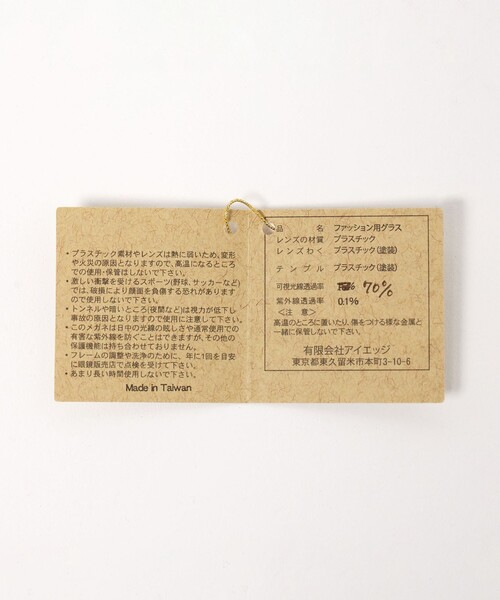 ・プラスチック素材やレンズは熱に弱いため、変形
や火災の原因となりますので、高温になるところ
での使用・保管はしないで下さい。
・激しい衝撃を受けるスポーツ(野球、サッカーなど)
では、破損により顔面を負傷する恐れがあります
ので使用しないで下さい。
・トンネルや暗いところ(夜間など)は視力が低下し
事故の原因となりますので使用に注意して下さい。
・このメガネは日中の光線の眩しさや通常使用での
有害な紫外線を防ぐことはできますが、その他の
保護機能は持ち合わせておりません。
・フレームの調整や洗浄のために、年に1回を目安
に眼鏡販売店で点検を受けて下さい。
・あまり長い時間使用しないで下さい。
Made in Taiwan
品 名 ファッション用グラス
レンズの材質 プラスチック
レンズわく プラスチック(塗装)
テンプル プラスチック(塗装)
可視光線透過率 70%
紫外線透過率 0.1%
<注 意>
高温のところに置いたり、傷をつける様な金属と
一緒に保管しないで下さい。
有限会社アイエッジ
東京都東久留米市本町3-10-6